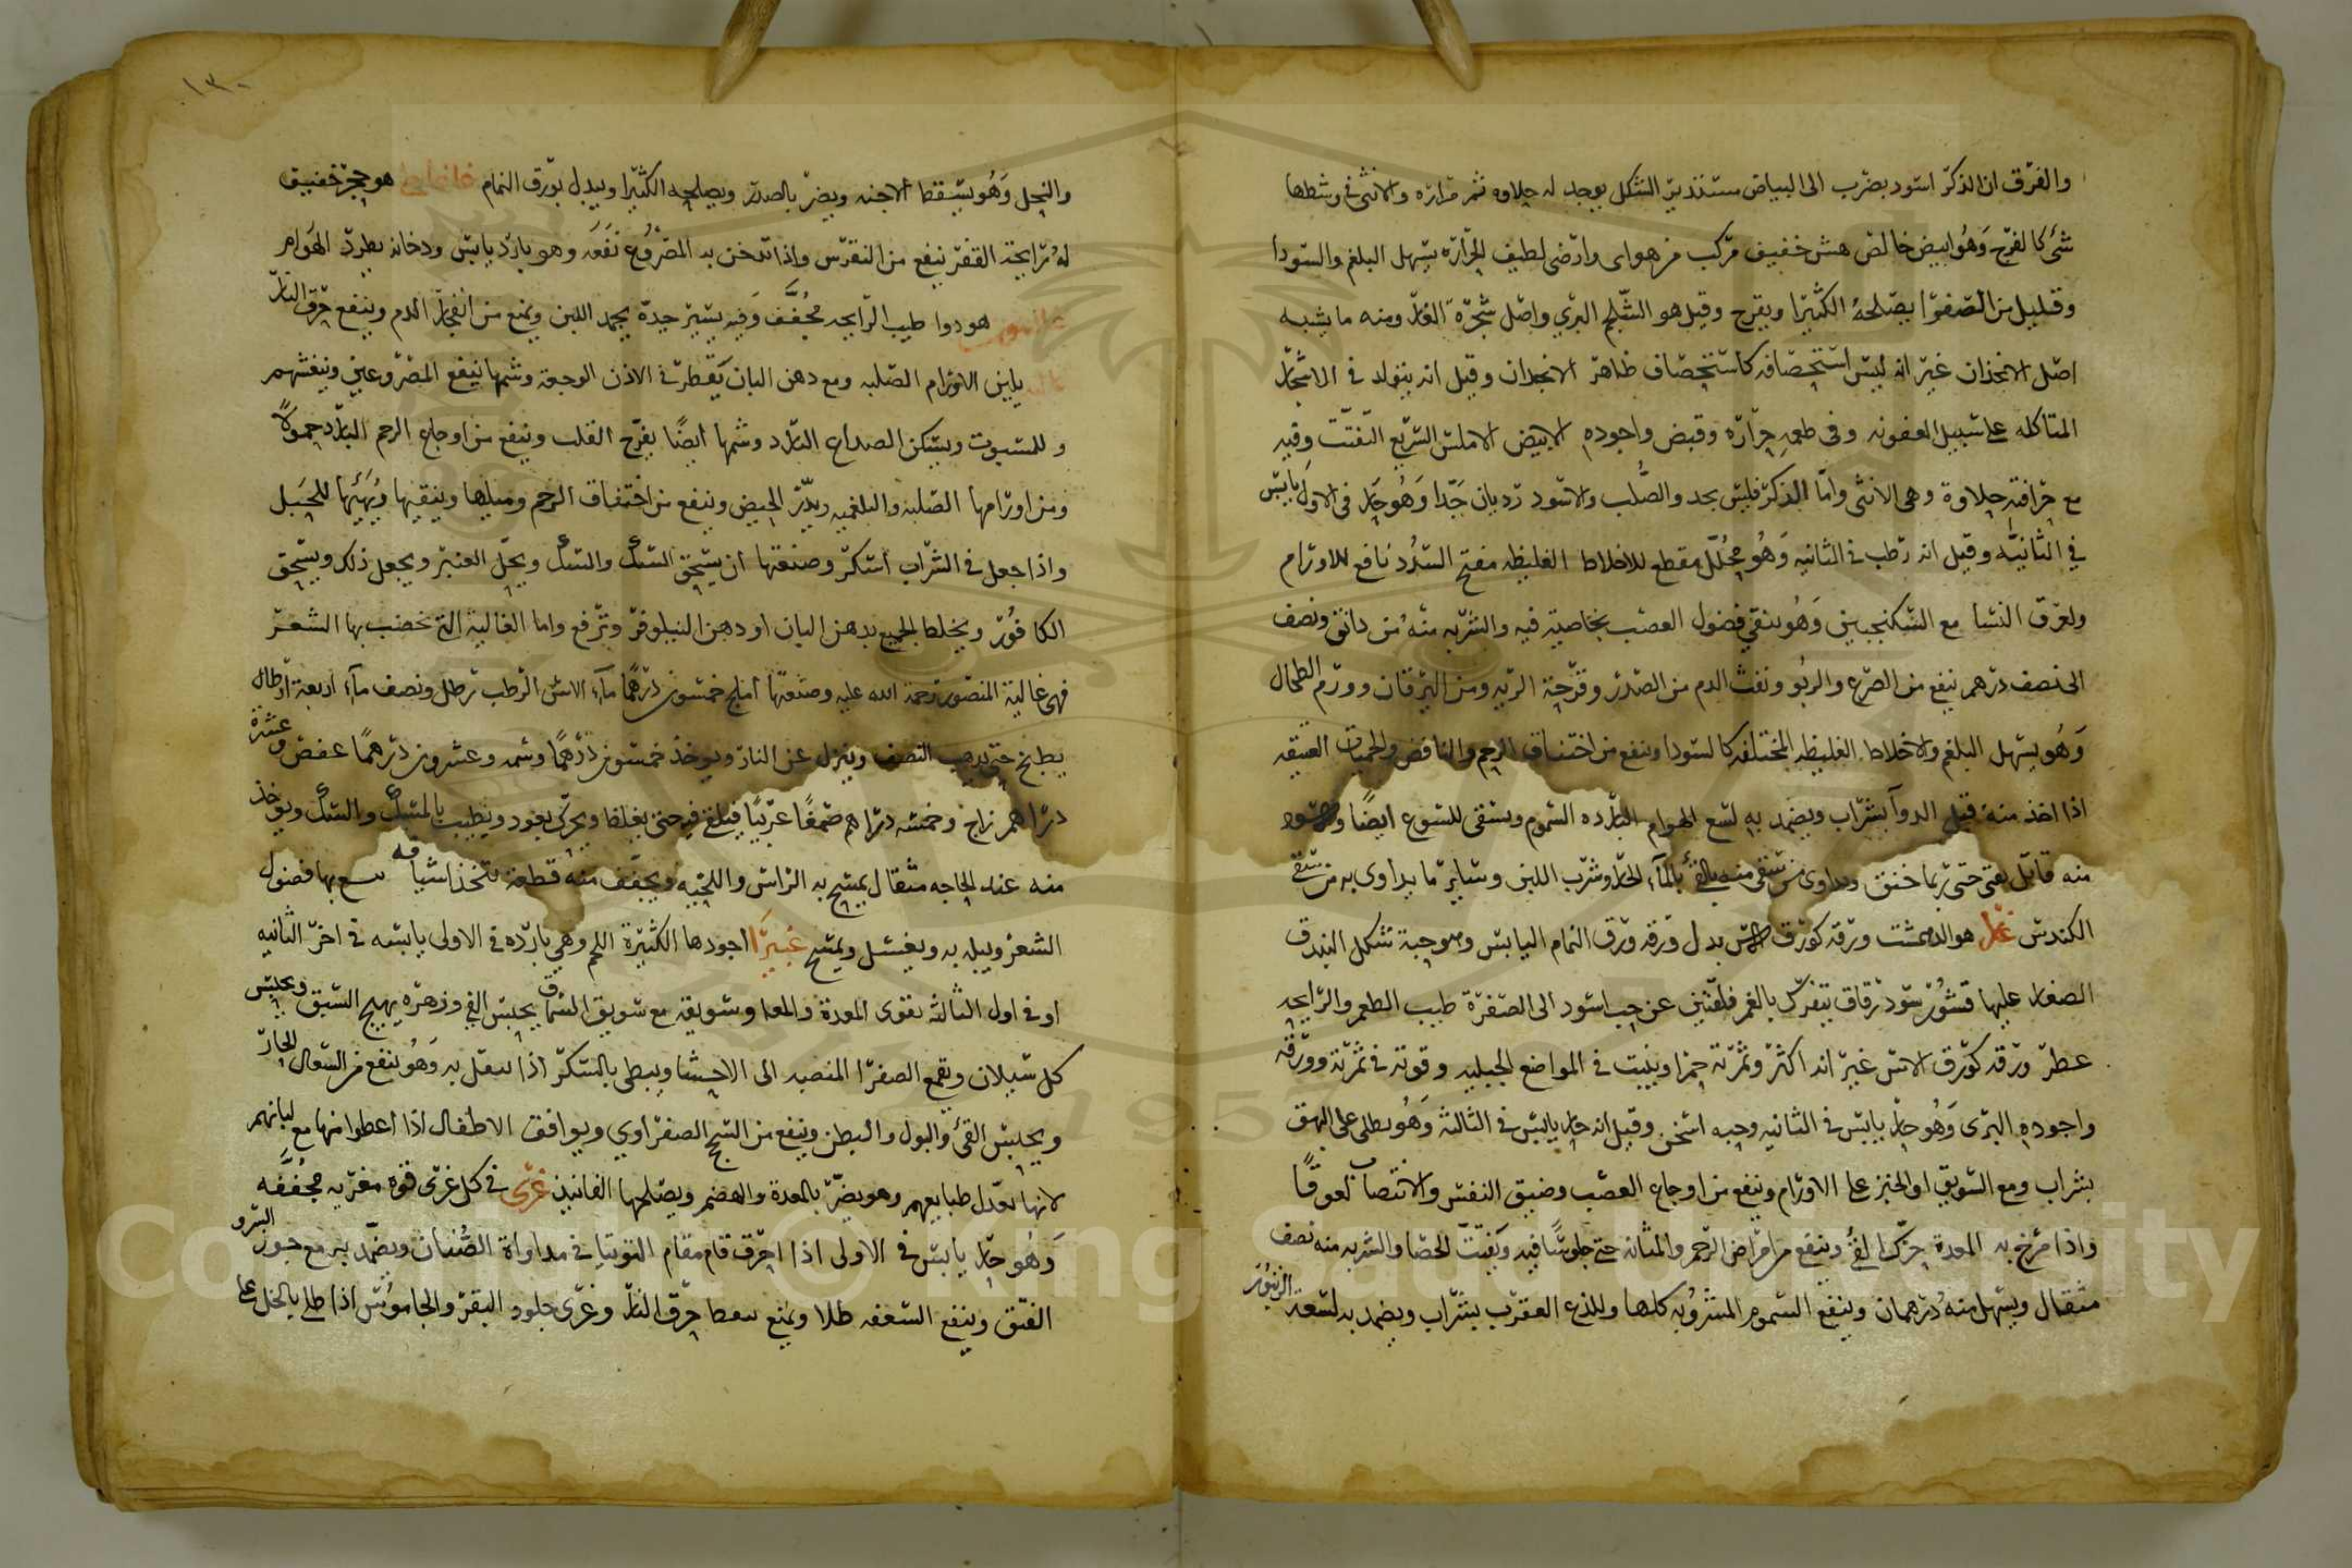 والفرق ان الذكر اسود يضرب الى البياض مستدير الشكل يوجد له حلاوه ثم مراره والانثى في وسطها
شئ كالفرج وهو ابيض خالص هش خفيف مركب من هواى وارضى لطيف الحراره يسهل البلغم والسودا
وقليل من الصفرا يصلحه الكثيرا ويقرح وقيل هو الشلجم البري واصل شجرة الغار ومنه ما يشبه
اصل الانجذان غير انه ليس استحصافه كاستحصاف ظاهر الانجدان وقيل انه يتولد في الاشجار
المتاكله على سبيل العفونه وفى طعمه حراره وقبض واجوده الابيض الاملس السريع التفتت وفيه
مع حرافته حلاوة وهى الانثى واما الذكر فليس بجد والصلب والاسود رديان جدا وهو حار فى الاولى يابس
في الثانيه وقيل انه رطب في الثانيه وهو محلل مقطع للاخلاط الغليظه مفتح السدد نافع للاورام
ولعرق النسا مع السكنجبين وهو ينقي فضول العصب بخاصية فيه والشربه منه من دانق ونصف
الى نصف درهم ينفع من الصرع والربو ونفث الدم من الصدر وقرحة الريه ومن اليرقان وورم الطحال
وهو يسهل البلغم والاخلاط الغليظه المختلفه كالسودا وينفع من اختناق الرحم والنافض والحميات العتيقه
اذا اخذ منه قبل الدوآ بشراب ويضمد به لسع الهوام البارده السموم ويسقى للسوع ايضا والاسود
منه قاتل يعنى حتى ربما خنق ويداوى من سقى منه بالقئ بالمآء الحار وشرب اللبن وساير ما يداوى به من سقى
الكندس غار هو الدهمشت ورقه كورق الاس بدل ورقه ورق النمام اليابس وهو حبة شكل البندق
الصغار عليها قشور سود رقاق يتفرك بالغمز فلقتين عن حب اسود الى الصفرة طيب الطعم والرايحه
عطر ورقه كورق الاس غير انه اكثر وثمرته حمرا وينبت في المواضع الجبليه وقوته في ثمرته وورقه
واجوده البرى وهو حار يابس في الثانيه وحبه اسخن وقيل انه حار يابس في الثالثه وهو يطلى على البهق
بشراب ومع السويق او الخبز على الاورام وينفع من اوجاع العصب وضيق النفس والانتصاب لعوقا
واذا مرخ به المعدة حرك القئ وينفع من امراض الرحم والمثانه حتى جلوسا فيه ويفتت الحصا والشربه منه نصف
مثقال ويسهل منه درهمان وينفع السموم المشروبه كلها وللدغ العقرب بشراب ويضمد به لسعة الزنبور
١٣٠
والنحل وهو يسقط الاجنه ويضر بالصدر ويصلحه الكثيرا ويبدل بورق النمام هو حجر خفيف
له رايحة القفر ينفع من النقرس واذا تدخن به المصروع نفعه وهو بارد يابس ودخانه يطرد الهوام
هو دوا طيب الرايحه مجفف وفيه يسير حدة يجمد اللبن ويمنع من انفجار الدم وينفع حرق النار
يلين الاورام الصلبه ومع دهن البان يقطر في الاذن الوجعة وشمها ينفع المصروعين وينفشهم
وللمسبوت ويسكن الصداع البارد وشمها ايضا يفرح القلب وينفع من اوجاع الرحم البارد حمولا
ومن اورامها الصلبه والبلغميه ويدر الحيض وينفع من اختناق الرحم وميلها وينقيها ويهيئها للحبل
واذا جعل في الشراب اسكر وصنعتها ان يسحق السك والمسك ويحل العنبر ويجعل ذلك ويسحق
الكافور ويخلط الجميع بدهن البان او دهن النيلوفر وترفع واما الغالية التي تخضب بها الشعر
فهى غالية المنصور رحمة الله عليه وصنعتها املج خمسون درهما مآء الاس الرطب رطل ونصف مآء اربعة ارطال
يطبخ حتى يذهب النصف وينزل عن النار ويوخذ خمسون درهما وسمه وعشرون درهما عفص وعشرة
دراهم زاج وخمسه دراهم صمغا عربيا فيلقى فيه حتى يغلظ ويحرك بعود ويطيب بالمسك والسك ويوخذ
منه عند الحاجه مثقال يمسح به الراس واللحيه ويجفف منه قطعة تتخذ اشيافه بها فضول
الشعر ويبل به ويغسل ويمسح غبيرا اجودها الكثيرة اللحم وهي بارده في الاولى يابسه في اخر الثانيه
او في اول الثالثه تقوى المعدة والمعا وسويقه مع سويق السماق يحبس القي وزهره يهيج الشبق ويحبس
كل سيلان ويقمع الصفرا المنصبه الى الاحشا ويبطى بالسكر اذا تنقل به وهو ينفع من السعال الحار
ويحبس القئ والبول والبطن وينفع من السحج الصفراوي ويوافق الاطفال اذا اعطوا منها مع لبانهم
لانها تعدل طبايعهم وهو يضر بالمعدة والهضم ويصلحها الفانيذ غرى في كل غرى قوه مغريه مجففه
وهو حار يابس في الاولى اذا احرق قام مقام التوتيا في مداواة الصنان ويضمد به مع جوز السرو
الفتق وينفع السعفه طلا ويمنع تنفط حرق النار وغرى جلود البقر والجاموس اذا طلي بالخل على